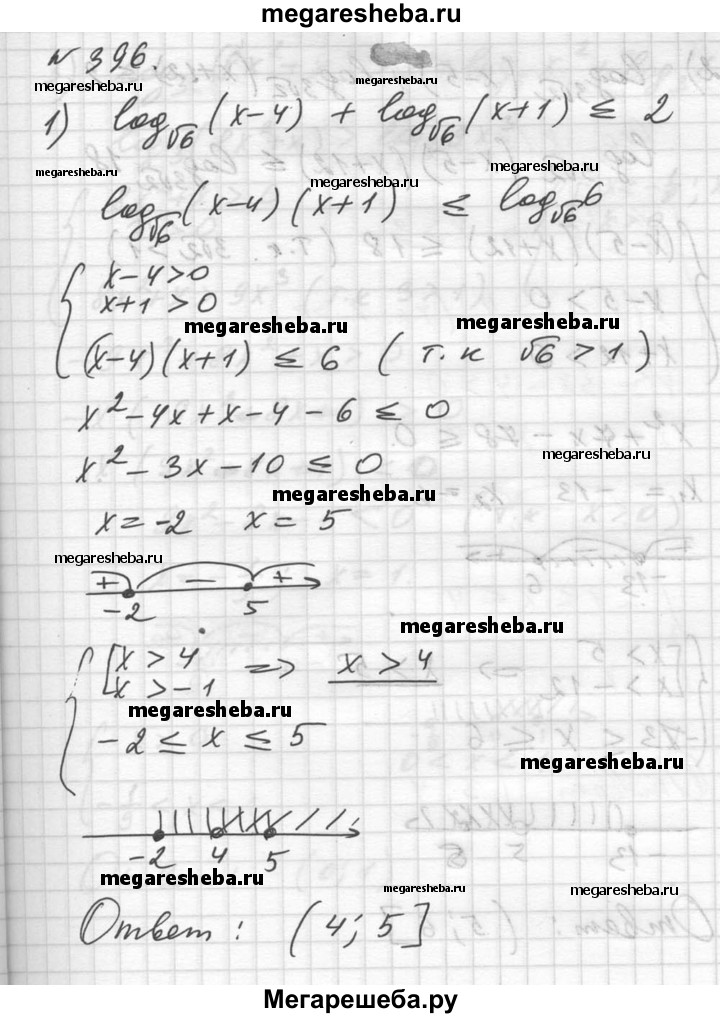 megaresheba.ru
№ 396.
megaresheba.ru
megaresheba.ru
1) log_√6 (x-4) + log_√6 (x+1) ≤ 2
megaresheba.ru
megaresheba.ru
megaresheba.ru
log_√6 (x-4)(x+1) ≤ log_√6 6
x-4>0
x+1>0
megaresheba.ru
megaresheba.ru
(x-4)(x+1) ≤ 6 (т.к √6 > 1)
x²-4x+x-4-6 ≤ 0
megaresheba.ru
x²-3x-10 ≤ 0
megaresheba.ru
x=-2 x=5
megaresheba.ru
+ − +
-2 5
megaresheba.ru
[x>4 => x>4
[x>-1
megaresheba.ru
-2 ≤ x ≤ 5
megaresheba.ru
-2 4 5
megaresheba.ru
megaresheba.ru
megaresheba.ru
Ответ: (4; 5]
Мегарешеба.ру